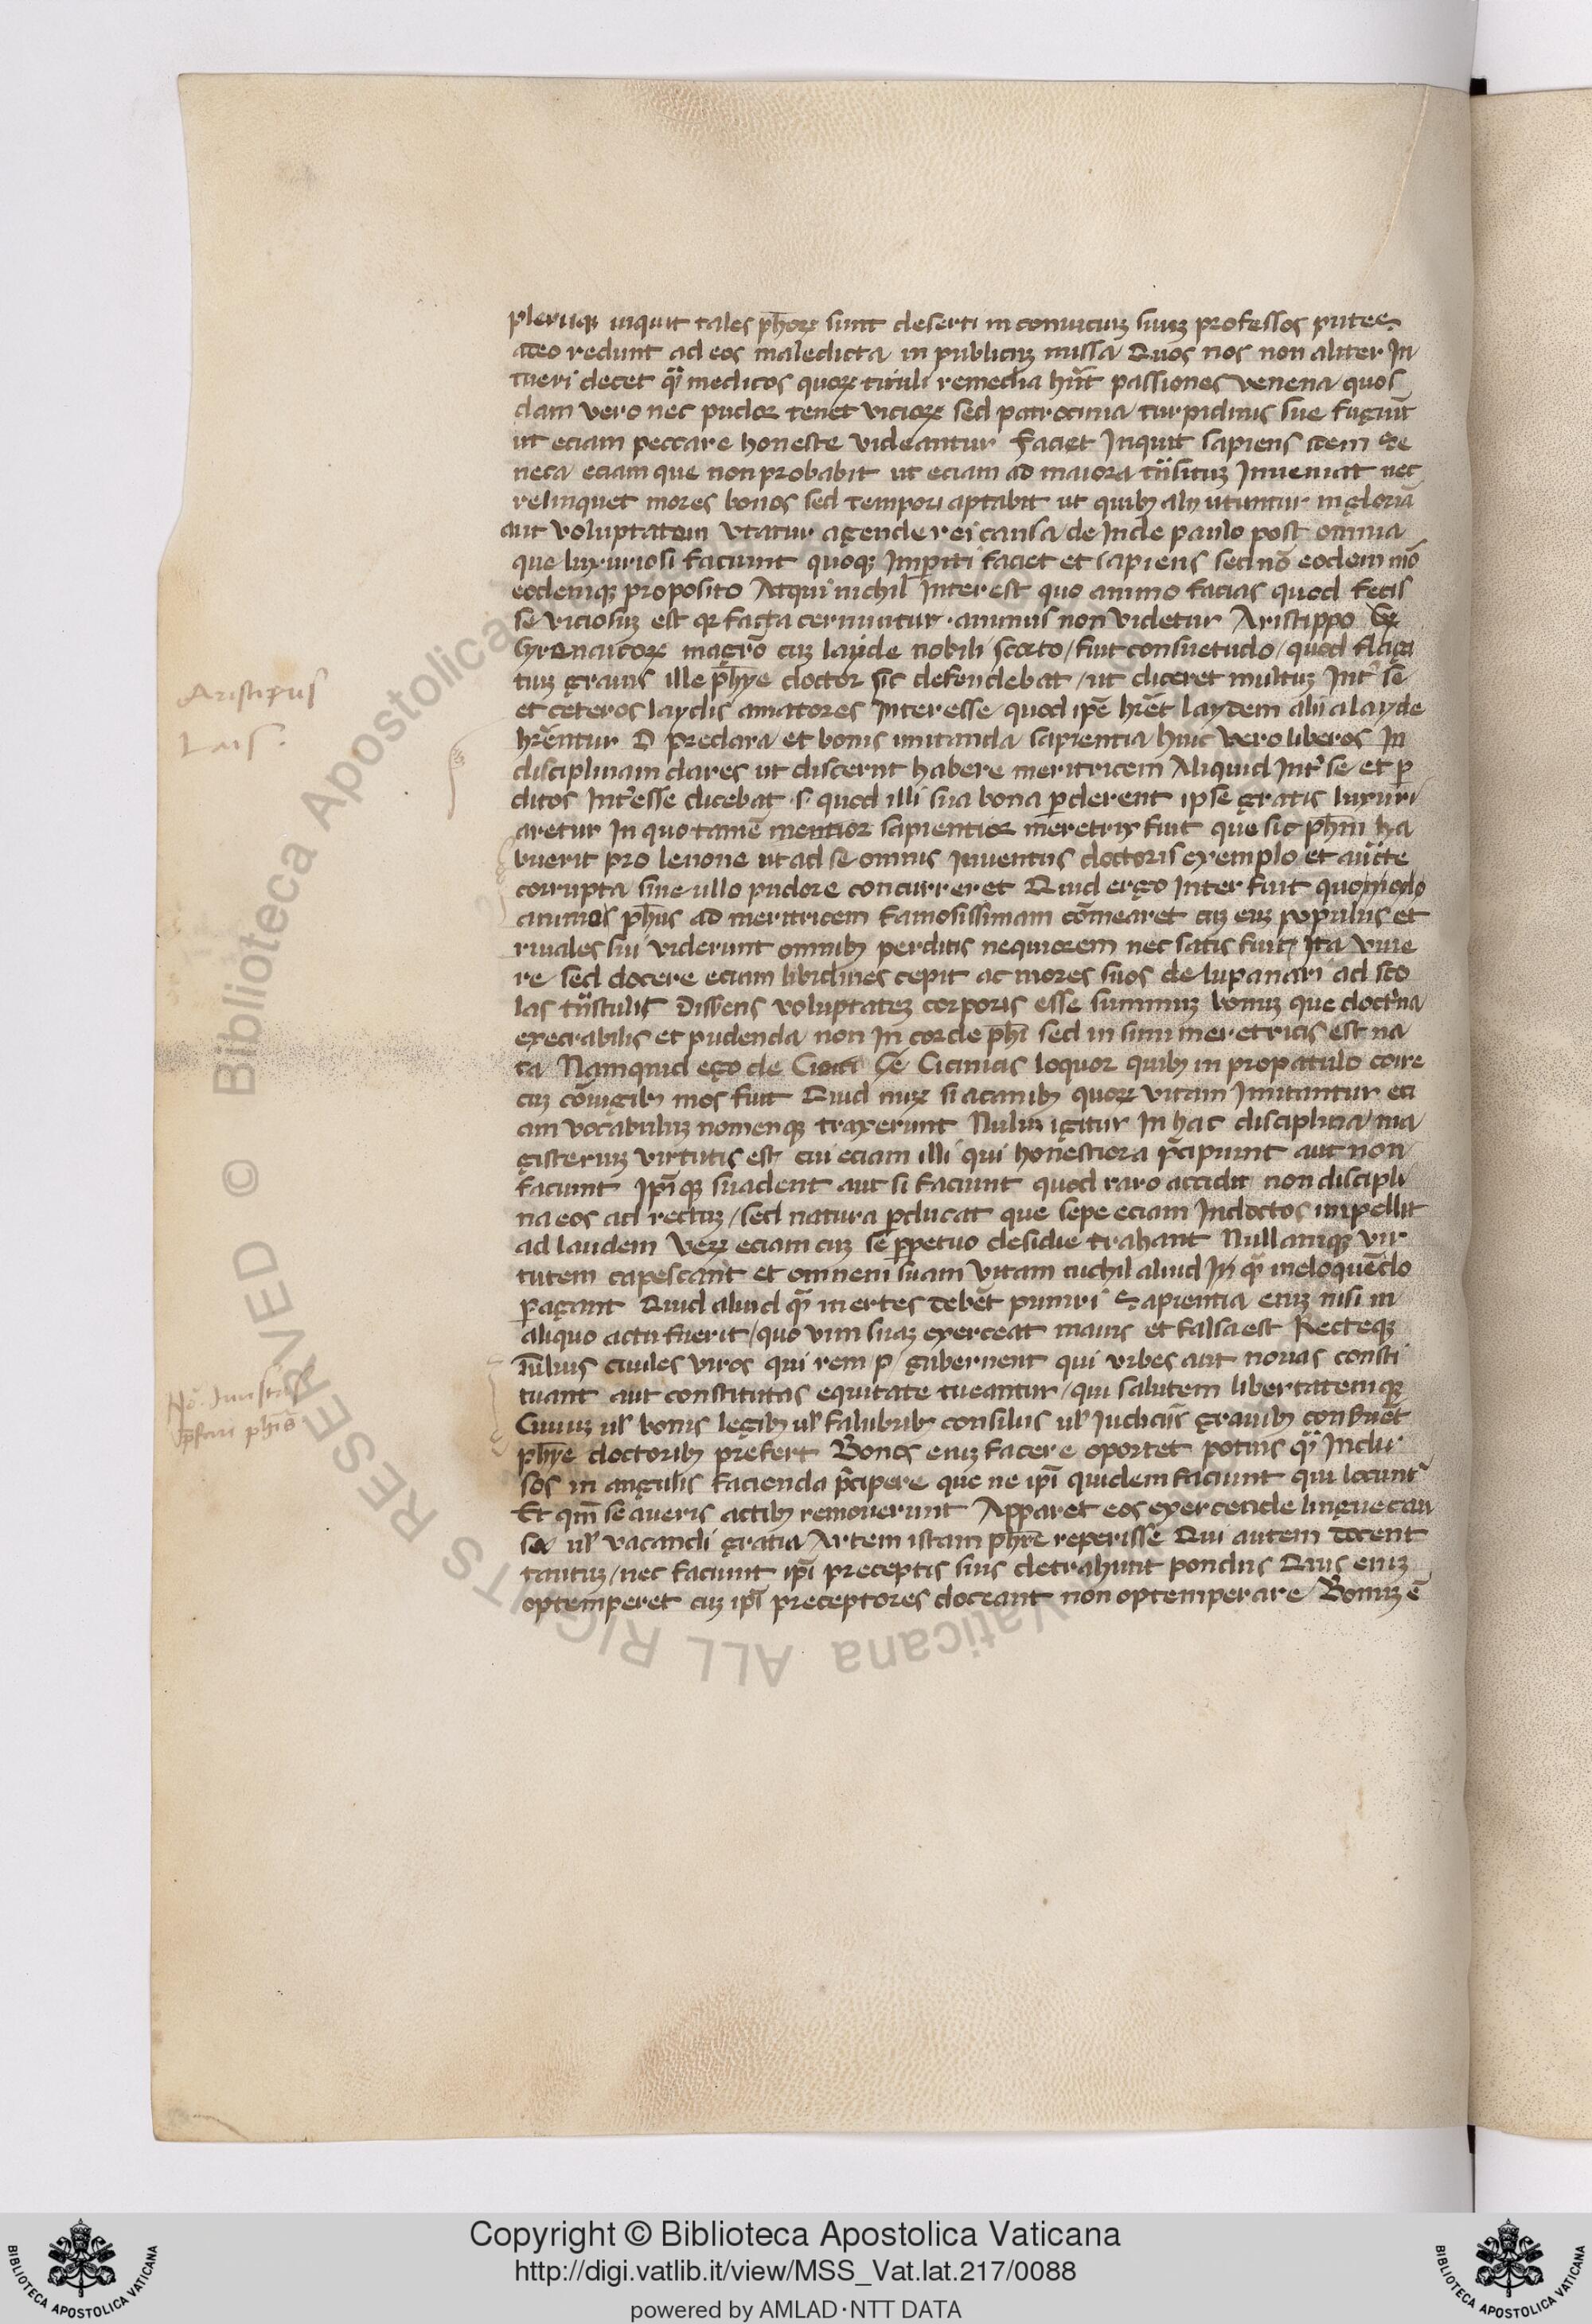 pleriq; inquit tales ph̄oꝝ sunt deserti in conuiciuȝ suuȝ professos putes
adeo redunt ad eos maledicta in publicuȝ missa Quos nos non aliter In
tueri decet qͣ medicos quoꝝ tituli remedia hn̄t passiones venena quos
dam vero nec pudor tenet vicioꝝ sed patrocinia turpidinis sue fugiūt
ut eciam peccare honeste videantur Faciet Inquit sapiens item Se
neca eciam que non probabit ut eciam ad maiora tͣnsituȝ Inueniat nec
relinquet mores bonos sed tempori aptabit ut quibꝫ alij utuntur in gloriā
aut voluptatem vtatur agende rei causa de Inde paulo post omnia
que luxuriosi faciunt quoqꝫ Imperiti faciet et sapiens sed nō eodem mō
eodemqꝫ proposito Atqui nichil Interest quo animo facias quod fecis
se viciosuȝ est qꝛ facta cernuntur animus non videtur Aristippo
Cyrenaicoꝝ magrō cuȝ layde nobili scorto / fuit consuetudo / quod flagi
tiuȝ grauis ille ph̄ye doctor sic defendebat / ut diceret multuȝ Int̓ se
et ceteros laydis amatores Interesse quod ipē hrēt laydem alii a layde
hrēntur O preclara et bonis imitanda sapientia huic vero liberos In
disciplinam dares ut discernt habere meritricem Aliquid Int̓ se et ꝑ
ditos Int̓esse dicebat .s. quod illi sua bona ꝑderent ipse gratis luxuri
aretur In quo tamē mentior sapientior meretrix fuit que sic ph̄m ha
buerit pro lenone ut ad se omnis Iuuentus doctoris exemplo et auc̄te
corrupta sine ullo pudore concurreret Quid ergo Inter fuit quomodo
animos ph̄us ad meritricem famosissimam cōmearet cuȝ euȝ populus et
riuales sui viderunt omnibꝫ perditis nequiorem nec satis fuit Ita viue
re sed docere eciam libidines cepit ac mores suos de lupanari ad sco
las tͣnstulit Dissens voluptateȝ corporis esse summuȝ bonuȝ que doct̓na
execrabilis et pudenda non In corde ph̄i sed in sinu meretricis est na
ta Namquid ego de Cinici Ce Cicinicis loquor quibꝫ in propatulo coire
cuȝ cōiugibꝫ mos fuit Quid miꝝ si a canibꝫ quoꝝ vitam Imitantur eci
am vocabuluȝ nomenqꝫ traxerunt Nulluȝ igitur In hac disciplina / ma
gisteriuȝ virtutis est cui eciam illi qui honestiora p̄cipiunt aut non
faciunt Ipīqꝫ suadent aut si faciunt quod raro accidit non discipli
na eos ad rectuȝ / sed natura ꝑducat que sepe eciam Indoctos impellit
ad laudem Veꝝ eciam cuȝ se ꝑpetuo desidie trahant Nullamqꝫ vir
tutem capescant et omnem suam vitam nichil aliud In qͣ ineloquēdo
ꝑagant Quid aliud qͣ inertes debēt puniri Sapientia eniȝ nisi in
aliquo actu fuerit / quo vim suaȝ exerceat inanis et falsa est Recteqꝫ
Tulius ciuiles viros qui rem p gubernent qui vrbes aut nouas consti
tuant aut constitutas equitate tueantur / qui salutem libertatemqꝫ
Ciuiuȝ ul̓ bonis legibꝫ ul̓ salubribꝫ consiliis ul̓ Iudiciis grauibꝫ conseruēt
ph̄ye doctoribꝫ prefert Bonos eniȝ facere oportet potius qͣ Inclu
sos in angulis facienda p̄cipere que ne ipī quidem faciunt qui locunt̓
Et qm̄ se a veris actibꝫ remouerunt Apparet eos exercende lingue cau
sa ul̓ vacandi gratia Artem istam ph̄ye reperisse Qui autem docent
tantuȝ / nec faciunt ipī preceptis suis detrahunt pondus Quis eniȝ
optemperet cuȝ ipī preceptores doceant non optemperare Bonuȝ ē
Aristipus
Lais
Copyright © Biblioteca Apostolica Vaticana
http://digi.vatlib.it/view/MSS_Vat.lat.217/0088
powered by AMLAD·NTT DATA
BIBLIOTECA APOSTOLICA VATICANA
BIBLIOTECA APOSTOLICA VATICANA
© Biblioteca Apostolica Vaticana ALL RIGHTS RESERVED